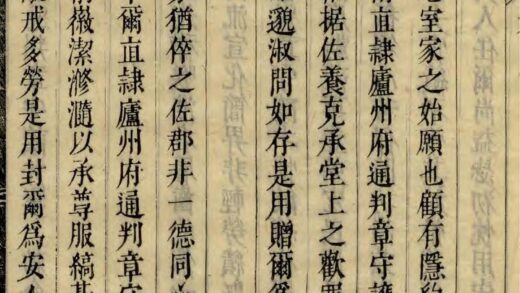 室家之始願也顧有隱約
直隸廬州府通判章守
据佐養克承堂上之歡
邈淑問如存是用贈爾爲
猶倅之佐郡非一德同
爾直隸廬州府通判章守
徽潔滫瀡以承尊服縞
戒多勞是用封爾爲安人